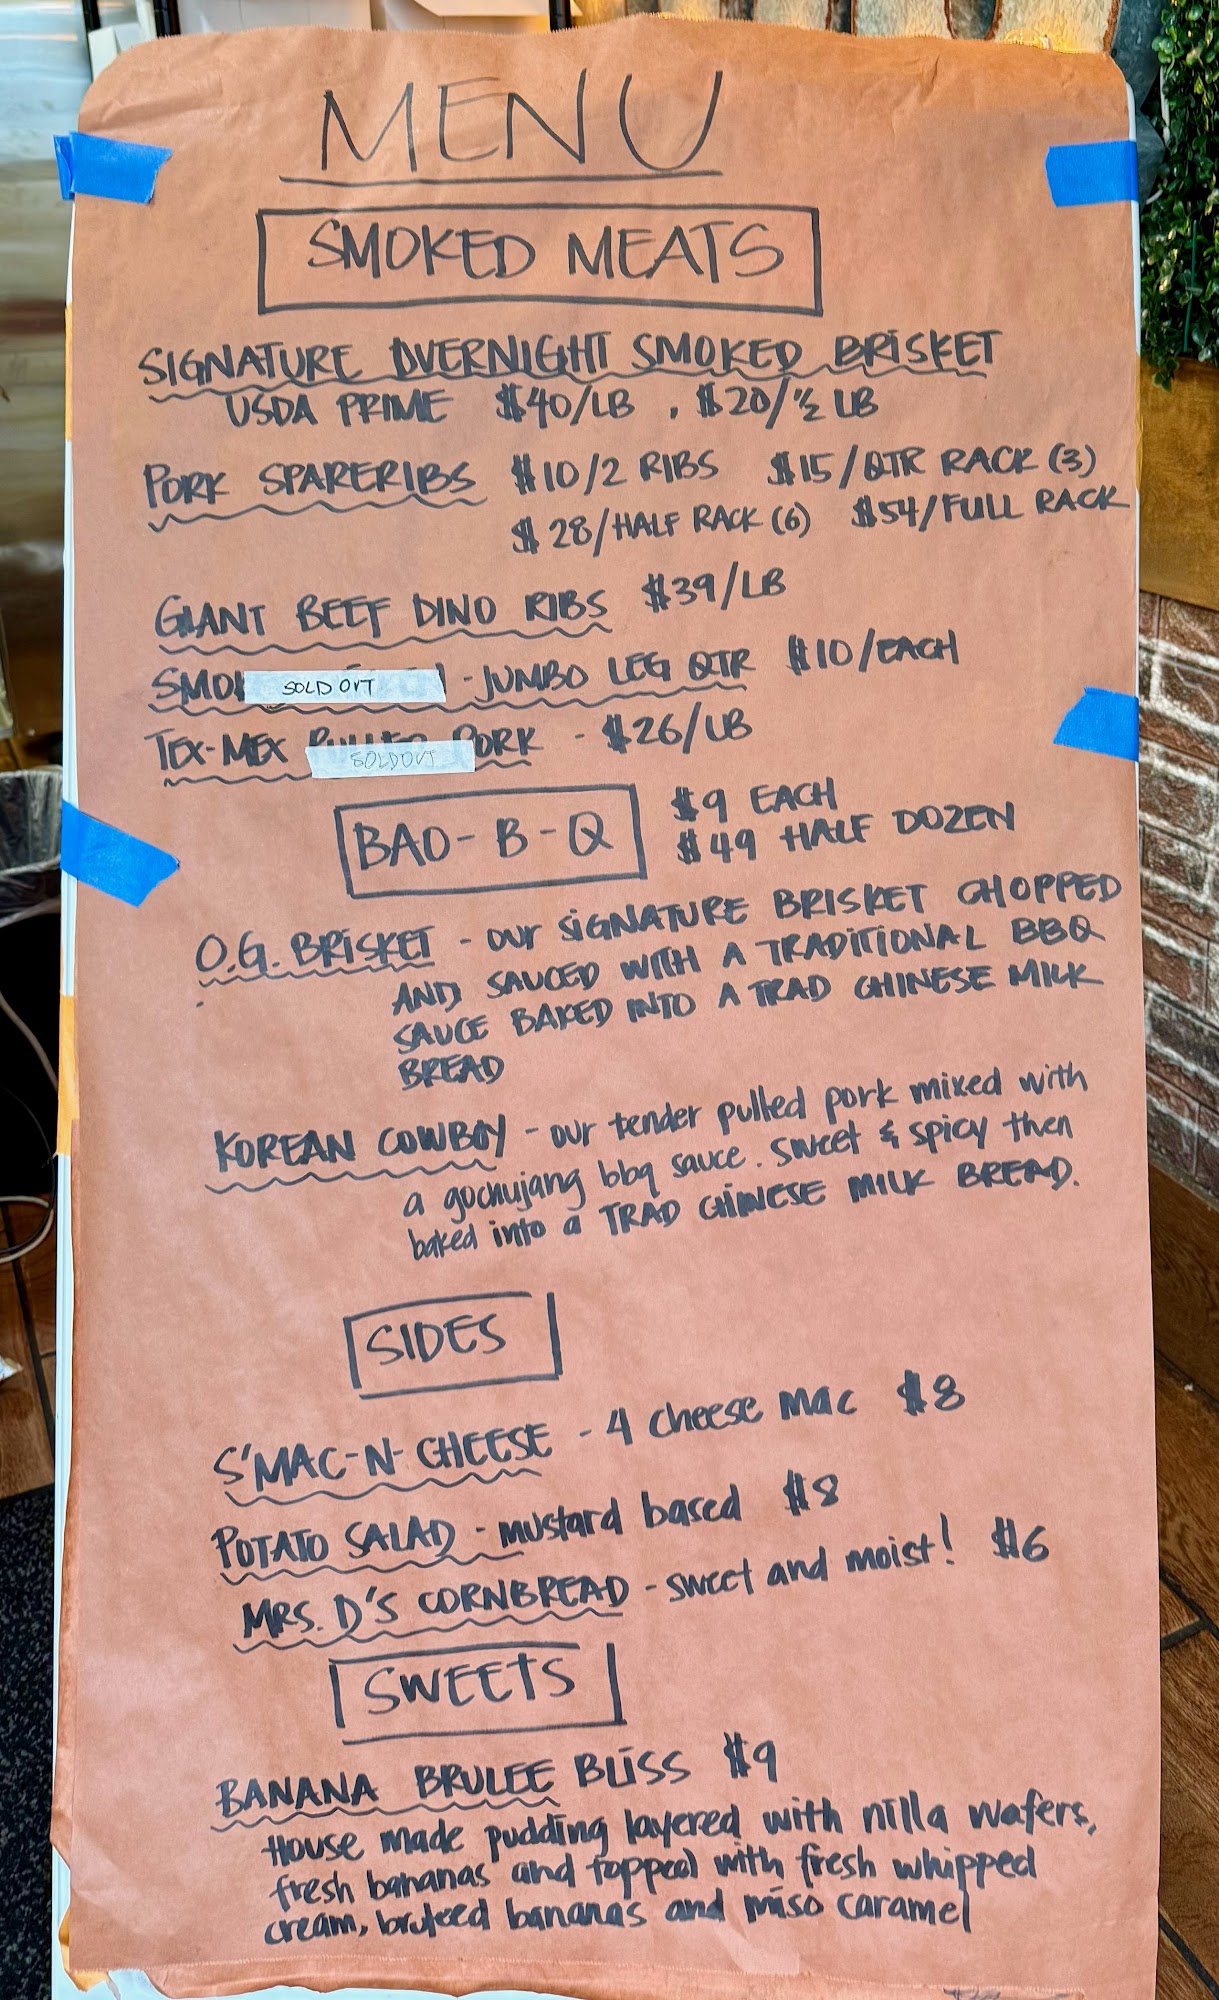 MENU
SMOKED MEATS
SIGNATURE OVERNIGHT SMOKED BRISKET
USDA PRIME $40/LB . $20/½ LB
PORK SPARERIBS $10/2 RIBS $15/QTR RACK (3)
$28/HALF RACK (6) $54/FULL RACK
GIANT BEEF DINO RIBS $39/LB
SOLD OUT - JUMBO LEG QTR $10/EACH
TEX-MEX PULLED PORK - $26/LB
SOLD OUT
BAO-B-Q $9 EACH
$49 HALF DOZEN
O.G. BRISKET - our SIGNATURE BRISKET CHOPPED
AND SAUCED WITH A TRADITIONAL BBQ
SAUCE BAKED INTO A TRAD CHINESE MILK
BREAD
KOREAN COWBOY - our tender pulled pork mixed with
a gochujang bbq sauce. sweet & spicy then
baked into a TRAD CHINESE MILK BREAD.
SIDES
S'MAC-N-CHEESE - 4 cheese mac $8
POTATO SALAD - mustard based $8
MRS. D'S CORNBREAD - sweet and moist! $6
SWEETS
BANANA BRULEE BLISS $9
House made pudding layered with nilla wafers,
fresh bananas and topped with fresh whipped
cream, bruleed bananas and miso caramel